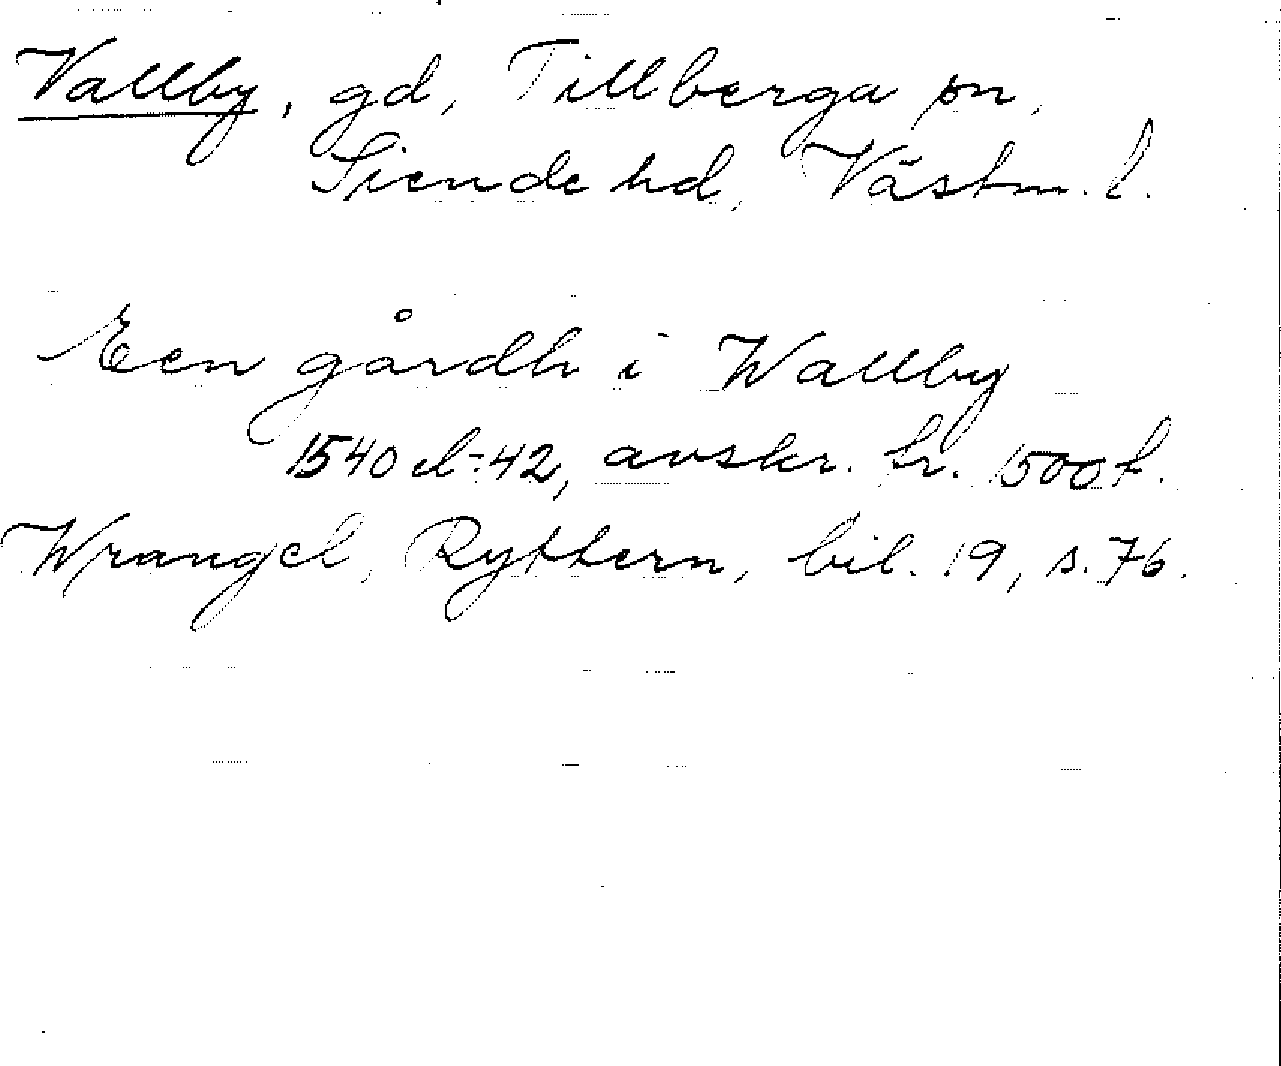 Vallby, gd, Tillberga sn,
Siende hd, Västm. l.
Een gårdh i Wallby
1540 el-42, avskr. fr. 1500 t.
Wrangel, Ryttern, bil. 19, s. 76.